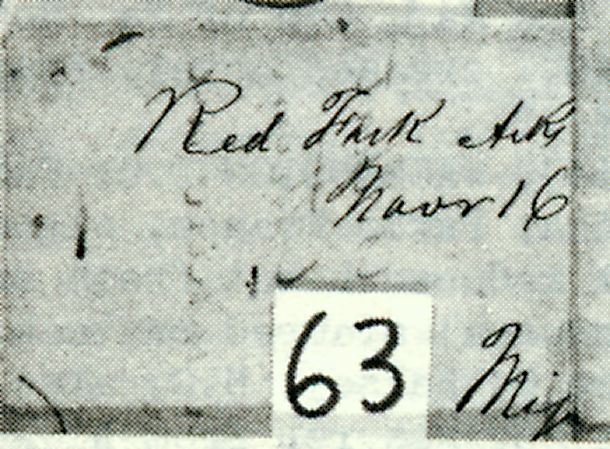 Red Fork Ark
Novr 16
63
Mis